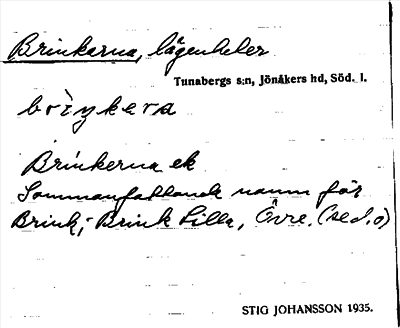 Brinkarna, lägenheter
Tunabergs s:n, Jönåkers hd, Söd. l.
brìŋkera
Brinkerna ek
Sammanfattande namn för
Brink,- Brink Lilla, Övre. (se d.o)
STIG JOHANSSON 1935.